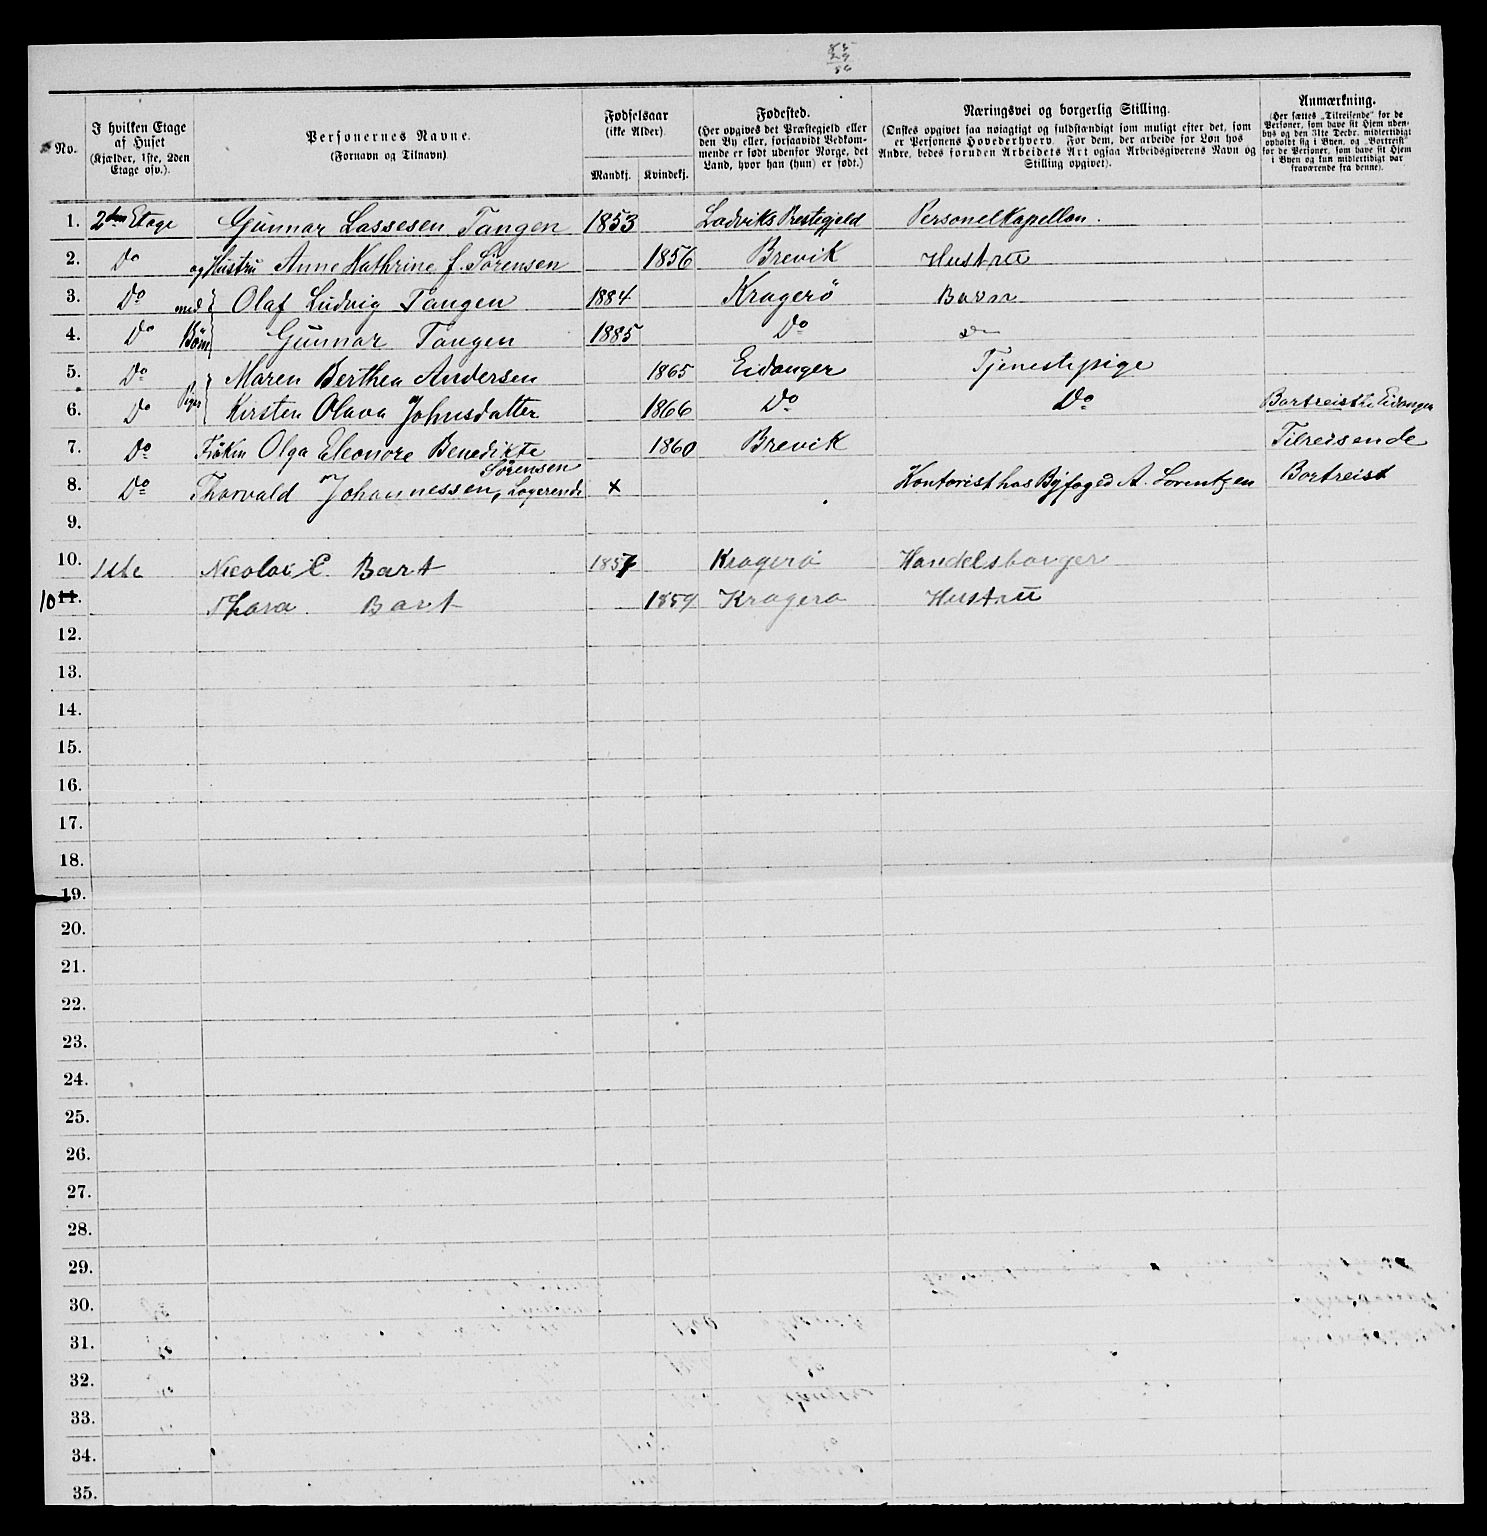 No.
I hvilken Etage
af Huset
(Kjælder, 1ste, 2den
Etage osv.).
Personernes Navne.
(Fornavn og Tilnavn)
Fødselsaar
(ikke Alder).
Mandkj. Kvindekj.
Fødested.
(Her opgives det Præstegjeld eller
den By eller, forsaavidt Vedkom-
mende er født udenfor Norge, det
Land, hvor han (hun) er født.)
Næringsvei og borgerlig Stilling.
(Ønskes opgivet saa nøiagtigt og fuldstændigt som muligt efter det, som
er Personens Hovederhverv. For dem, der arbeide for Løn hos
Andre, bedes foruden Arbeidets Art ogsaa Arbeidsgiverens Navn og
Stilling opgivet).
Anmærkning.
(Her sættes „Tilreisende“ for de
Personer, som have sit Hjem uden-
bys og den 31te Decbr. midlertidigt
opholdt sig i Byen, og „Bortreist“
for de Personer, som have sit Hjem
i Byen og kun midlertidigt var
fraværende fra denne).
1. 2den Etage Gunnar Lassesen Tangen 1853 Ladviks Prestegjeld Personelkapellan.
2. Do og Hustru Anne Kathrine f. Sørensen 1856 Brevik Hustru
3. Do med Olaf Ludvig Tangen 1884 Kragerö Barn
4. Do Börn Gunnar Tangen 1885 Do Do
5. Do Maren Berthea Andersen 1865 Eidanger Tjenestepige
6. Do Piger Kirsten Olava Johnsdatter 1866 Do Do Bortreist til Eidanger
7. Do Frøken Olga Eleonore Benedikte 1860 Brevik Tilreisende
Sørensen
8. Do Thorvald Johannessen, Logerende × Kontorist hos Byfoged A. Lorentzen Bortreist
9.
10. 1ste Nicolai C. Bart 1857 Kragerø Handelsborger
10 11. Thora Bart 1859 Kragerø Hustru
12.
13.
14.
15.
16.
17.
18.
19.
20.
21.
22.
23.
24.
25.
26.
27.
28.
29.
30.
31.
32.
33.
34.
35.